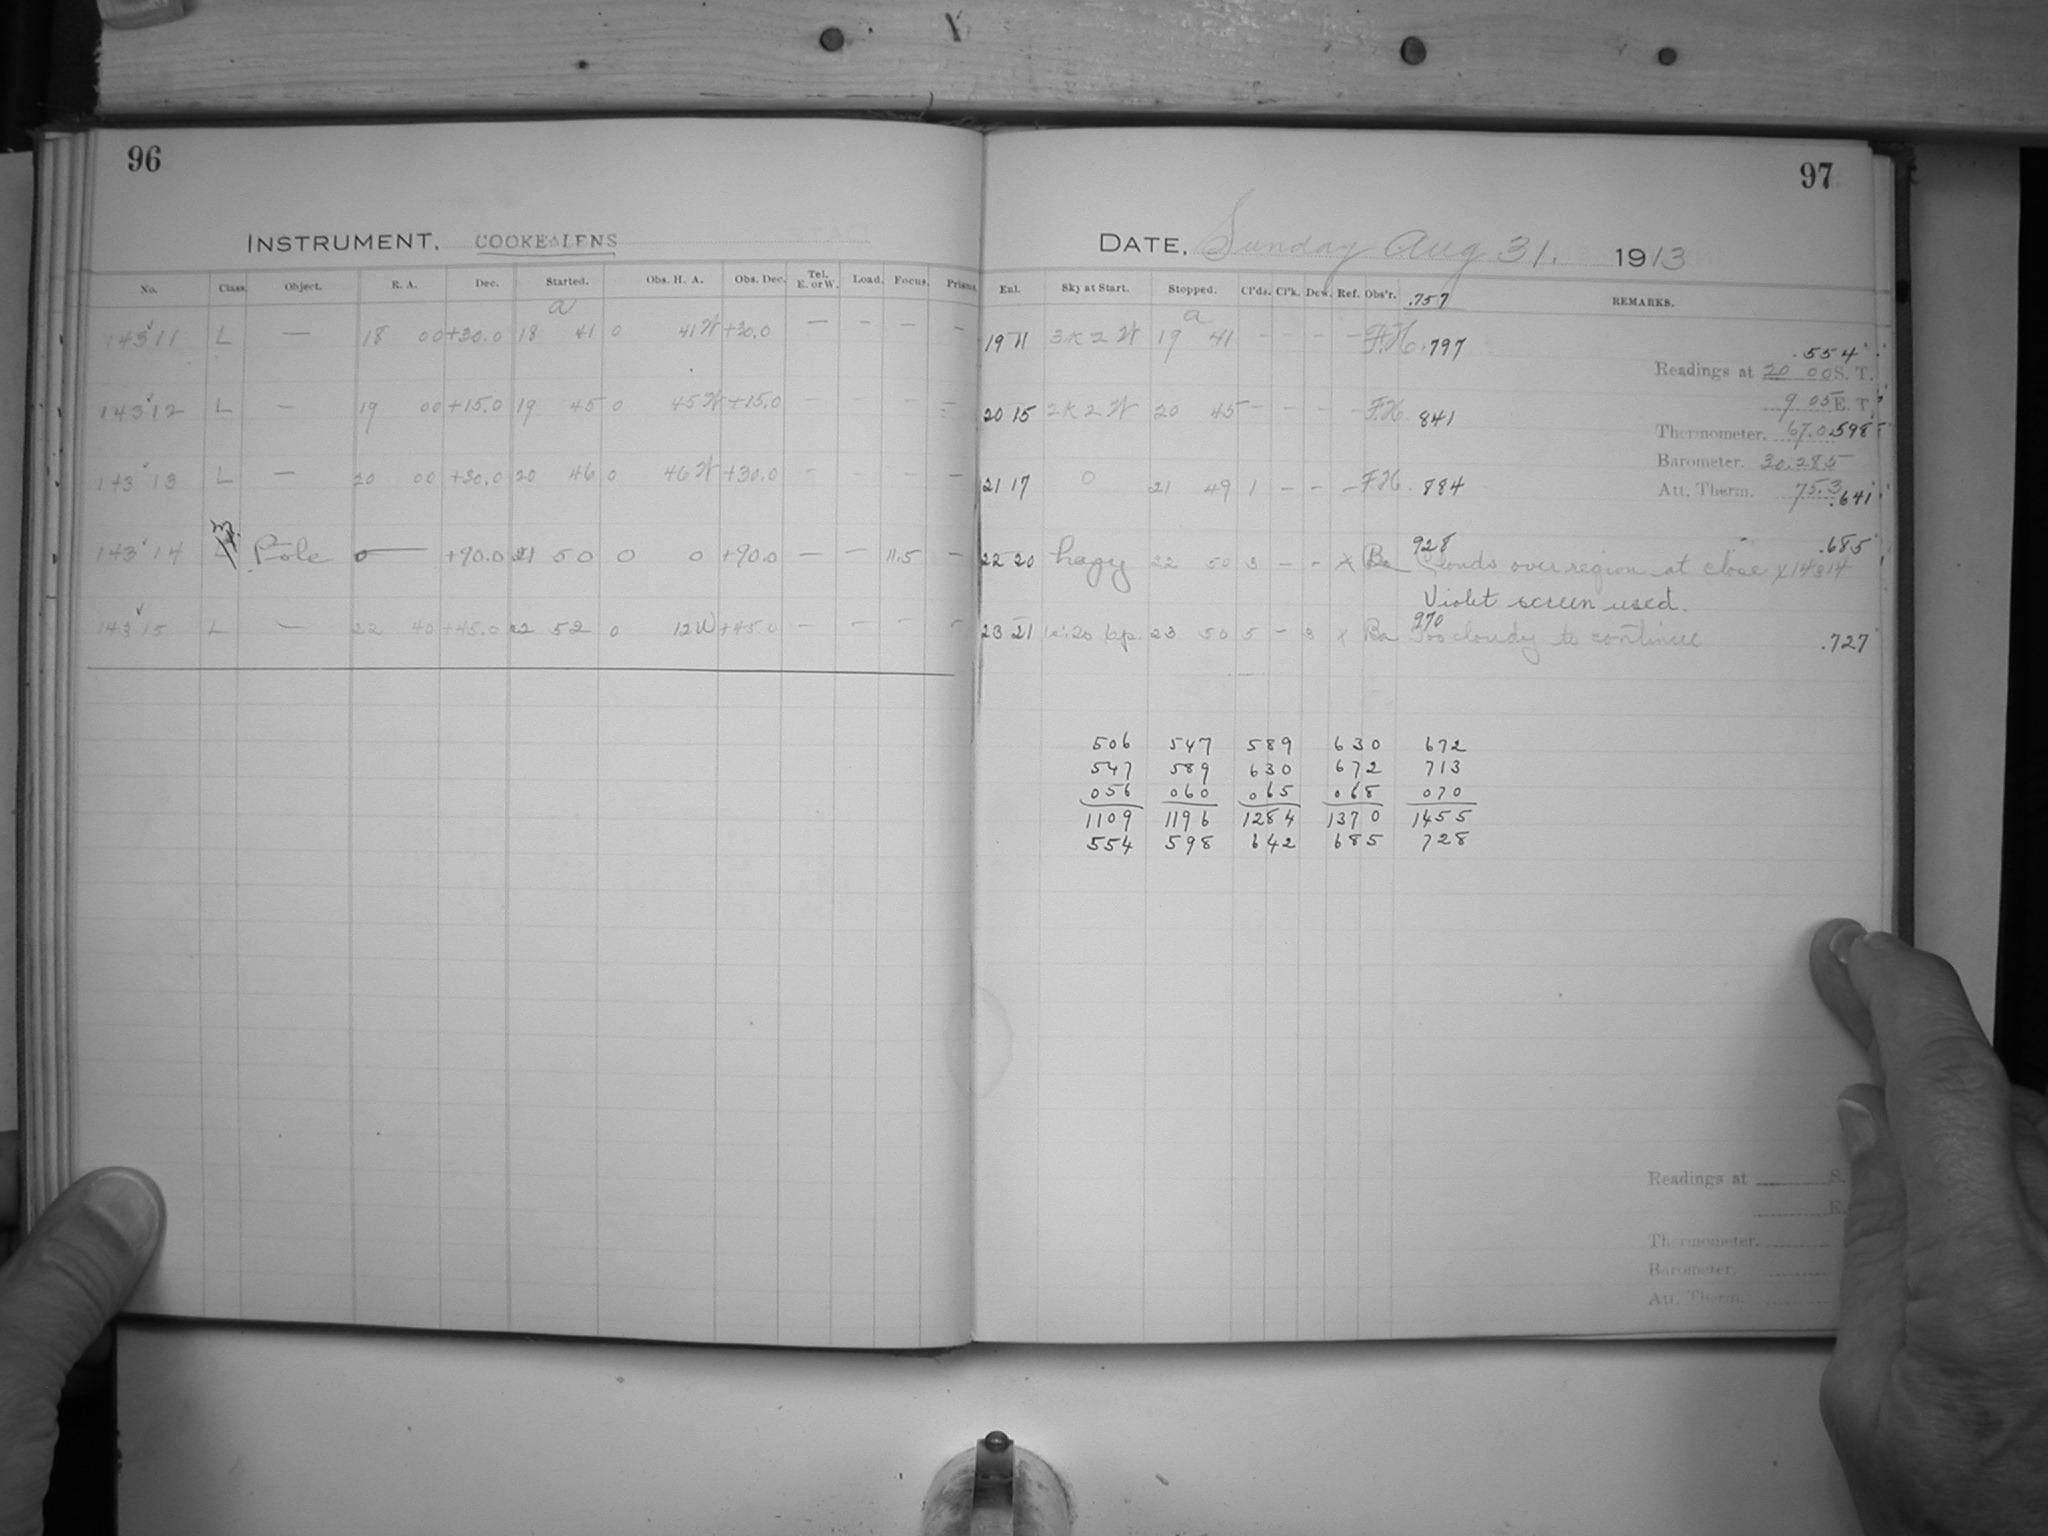 96
INSTRUMENT. COOKE LENS
No. Class. Object. R. A. Dec. Started. Obs. H. A. Obs. Dec. Tel. E. or W. Load. Focus. Prisms.
a
14311 L — 18 00 +30.0 18 41 0 41 W +30.0 — – – –
14312 L — 19 00 +15.0 19 45 0 45 W +15.0 – – – –
14313 L — 20 00 +30.0 20 46 0 46 W +30.0 – – – –
14314 Pole 0 — +90.0 21 50 0 0 +90.0 — — 11.5 –
14315 L — 22 40 +45.0 22 52 0 12 W +45.0 – – – –
97
DATE. Sunday Aug 31. 1913
Exl. Sky at Start. Stopped. Cl'ds. Cl'k. Dew. Ref. Obs'r. .757 REMARKS.
a
19 11 3 K 2 W 19 41 – – – – F.H. .797
.554
Readings at 20 00 S. T.
9 05 E. T.
20 15 2 K 2 W 20 45 – – – – F.H. 841
Thermometer. 67.0 .598
Barometer. 30.285
21 17 0 21 49 1 – – – F.H. .884
Att. Therm. 75.3 .641
928 .685
22 20 hazy 22 50 3 – – x Ba Clouds over region at close x 14314
Violet screen used.
970
23 21 23 50 5 – 3 x Ba Too cloudy to continue .727
506 547 589 630 672
547 589 630 672 713
056 060 065 068 070
1109 1196 1284 1370 1455
554 598 642 685 728
Readings at S.
E.
Thermometer.
Barometer.
Att. Therm.